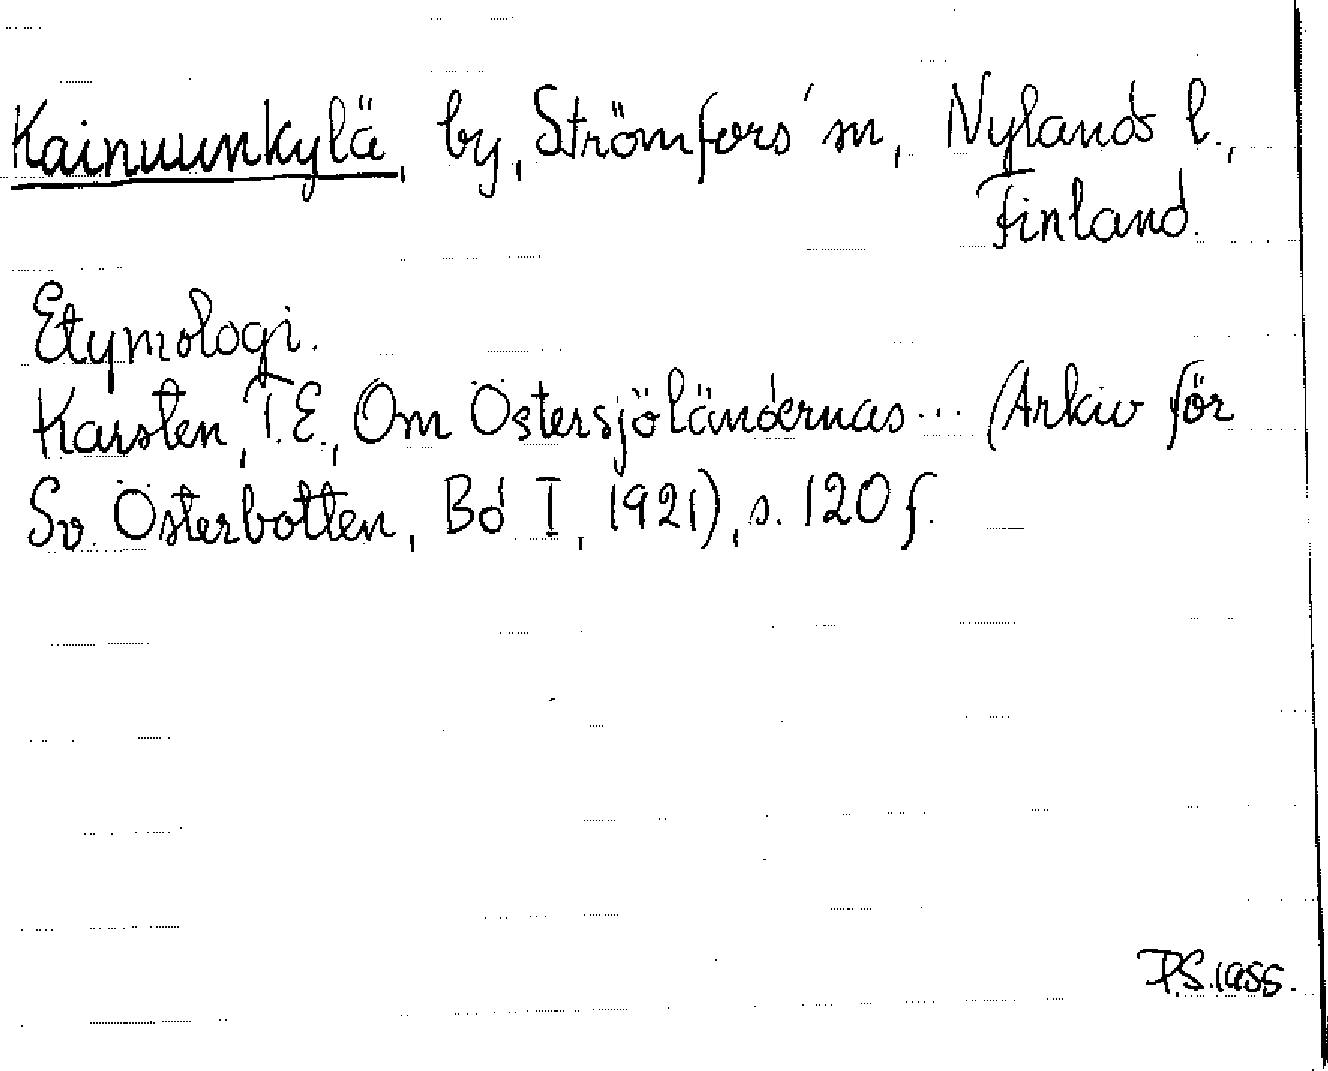 Kainuunkylä, by, Strömfors' sn, Nylands l.,
Finland.
Etymologi.
Karsten, T.E., Om Östersjöländernas... (Arkiv för
Sv. Österbotten, Bd I, 1921), s. 120 f. —
P.S. 1955.